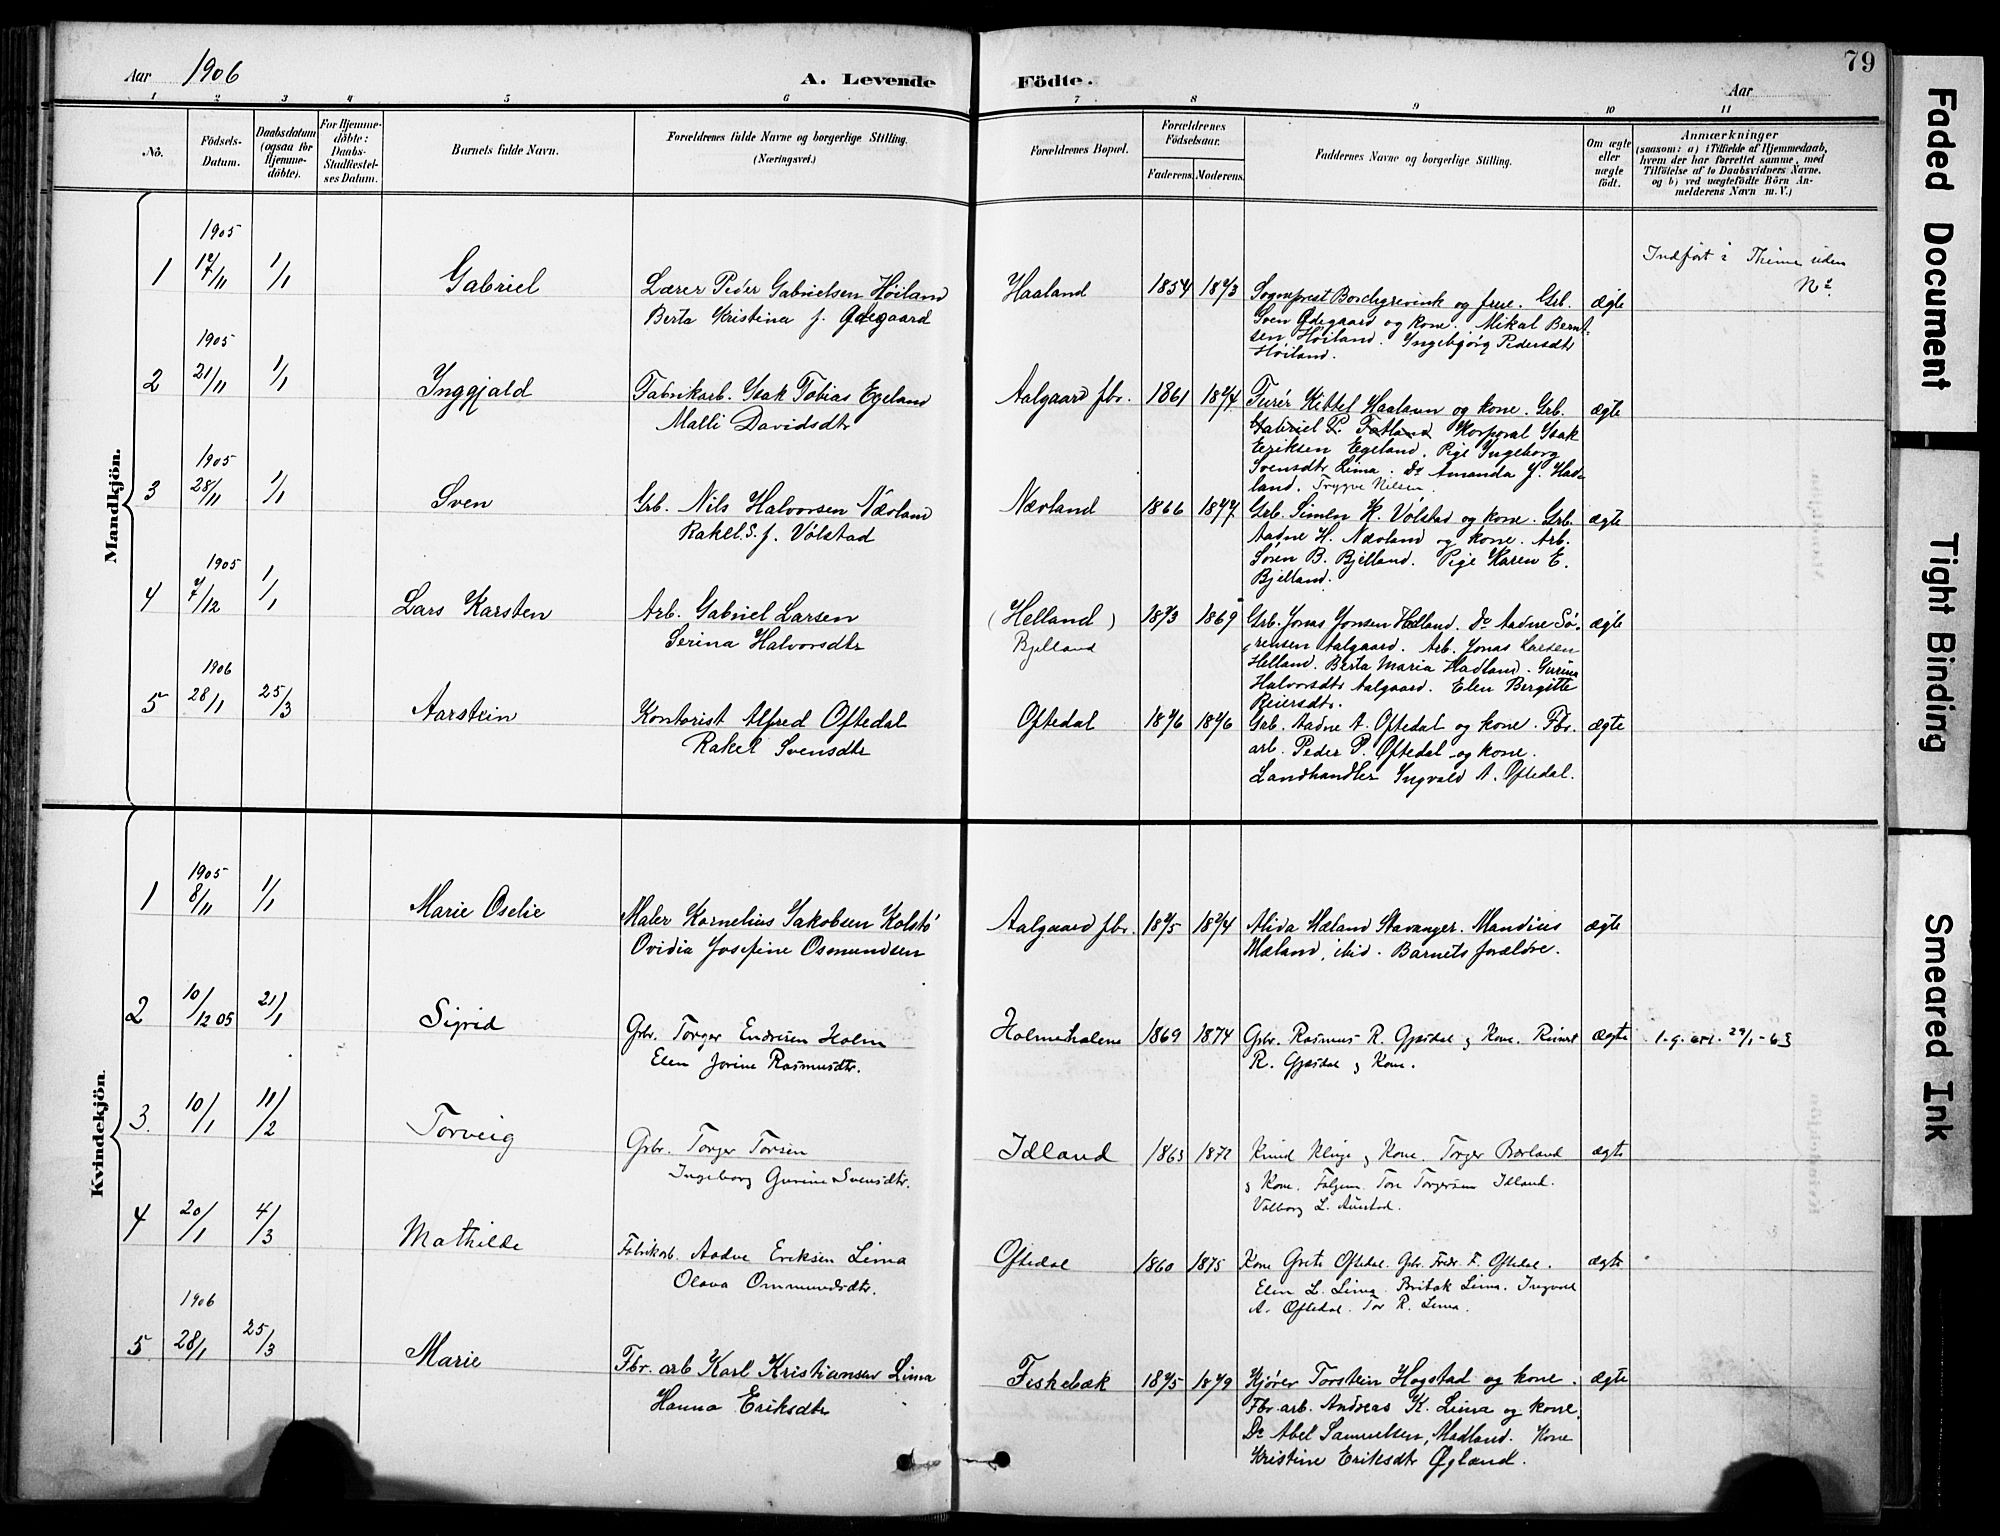 Aar 1906
A. Levende Födte.
Aar
79
1 2 3 4 5 6 7 8 9 10 11
No.
Födsels-
Datum.
Daabsdatum
(ogsaa for
Hjemme-
döbte).
For Hjemme-
döbte:
Daabs-
Stadfæstel-
ses Datum.
Barnets fulde Navn.
Forældrenes fulde Navne og borgerlige Stilling.
(Næringsvei.)
Forældrenes Bopæl.
Forældrenes
Födselsaar.
Faderens. Moderens.
Faddernes Navne og borgerlige Stilling.
Om ægte
eller
uægte
födt.
Anmærkninger
(saasom: a) i Tilfælde af Hjemmedaab,
hvem der har forrettet samme, med
Tilföielse af to Daabsvidners Navne.
og b) ved uægtefödte Börn An-
melderens Navn m. V.)
Mandkjön.
1905
1 17/11 1/1 Gabriel
Lærer Peder Gabrielsen Høiland
Berta Kristina f. Ødegaard
Haaland 1854 1873
Sogneprest Borchgrevink og frue. Grb.
Sven Ødegaard og kone. Mikal Bernt-
sen Høiland. Ingebjørg Pedersdtr
Høiland.
ægte
Indført i Thime uden
No.
1905
2 21/11 1/1 Inggjald
Fabrikarb. Isak Tobias Egeland
Malli Davidsdtr
Aalgaard fbr. 1861 1874
Kittel Haaland og kone. Grb.
Gabriel P. Fatland Korporal Isak
Eriksen Egeland. Pige Ingeborg
Svensdtr Lima. Do Amanda J. Had-
land. Trygve Nilsen.
ægte
1905
3 28/11 1/1 Sven
Grb. Nils Halvorsen Nævland
Rakel S. f. Vølstad
Nævland 1866 1877
Grb. Simen K. Vølstad og kone. Grb.
Aadne H. Nævland og kone. Arb.
Søren B. Bjelland. Pige Karen E.
Bjelland.
ægte
1905
4 7/12 1/1 Lars Karsten
Arb. Gabriel Larsen
Serina Halvorsdtr
(Helland)
Bjelland
1873 1869
Grb. Jonas Jonsen Helland. Do Aadne Sø-
rensen Aalgaard. Arb. Jonas Larsen
Helland. Berta Maria Hadland. Gurina
Halvorsdtr Aalgaard. Elen Bergitte
Reiersdtr.
ægte
1906
5 28/1 25/3 Aarstein
Kontorist Alfred Oftedal
Rakel Svensdtr
Oftedal 1876 1876
Grb. Aadne A. Oftedal og kone. Fbr.
arb. Peder P. Oftedal og kone.
Landhandler Ingvald A. Oftedal.
ægte
Kvindekjön.
1905
1 8/11 1/1 Marie Oselie
Maler Kornelius Jakobsen Kolstø
Ovidia Josefine Osmundsen
Aalgaard fbr. 1875 1874
Alida Mæland Stavanger. Mandius
Mæland, ibid. Barnets forældre.
ægte
2 10/12 05 21/1 Sigrid
Gbr. Torger Endresen Holm
Elen Jorine Rasmusdtr.
Holmehalene 1869 1874
Gbr. Rasmus R. Gjesdal og Kone. Reinert
R. Gjesdal og Kone.
ægte
29/1-63
3. 10/1 11/2 Torveig
Gbr. Torger Torsen
Ingeborg Gurine Svensdtr.
Idland 1863 1872
Knud Kluge og Kone. Torger Bærland
og Kone. Tore Torgersen Idland.
Valborg L. Austad.
ægte
4 20/1 4/3 Mathilde
Fabrikarb. Aadne Eriksen Lima
Olava Ommundsdtr.
Oftedal 1860 1875
Kone Grete Oftedal. Gbr. Fredr. F. Oftedal.
Elen L. Lima. Britak Lima. Ingvald
A. Oftedal. Tor R. Lima.
ægte
1906
5 28/1 25/3 Marie
Fbr. arb Karl Kristiansen Lima
Hanna Eriksdtr
Fiskebæk 1875 1879
Kjører Torstein Hogstad og kone.
Fbr. arb. Andreas K. Lima og kone.
Do Abel Samuelsen, Madland. Kone
Kristine Eriksdtr Øgland.
ægte
Faded Document
Tight Binding
Smeared Ink